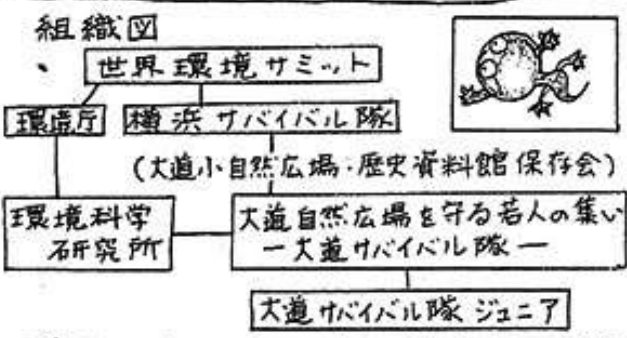 組織図
世界環境サミット
環境庁
横浜サバイバル隊
(大道小自然広場・歴史資料館保存会)
環境科学
研究所
大道自然広場を守る若人の集い
ー大道サバイバル隊ー
大道サバイバル隊ジュニア